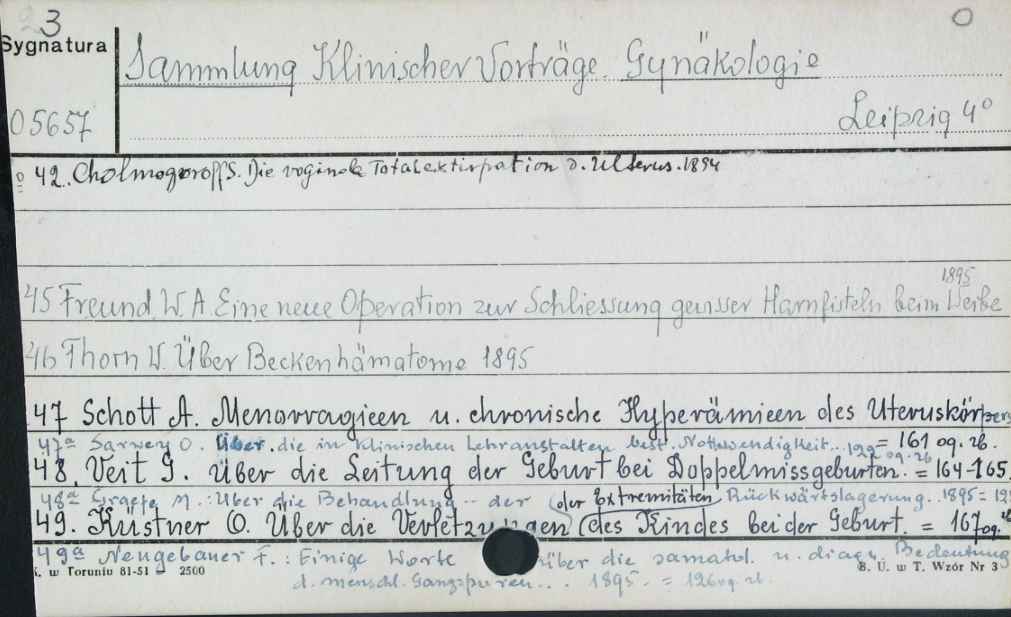 3
O
Sygnatura
Sammlung Klinischer Vorträge. Gynäkologie
05657
Leipzig 4°
42. Cholmogoroff S. Die vaginale Totalextirpation d. Uterus. 1894
1895
45 Freund W. A. Eine neue Operation zur Schliessung gewisser Harnfisteln beim Weibe
46 Thorn W. Über Beckenhämatome 1895
47 Schott A. Menorragieen u. chronische Hyperämieen des Uteruskörpers
47a Sarwey O. Über die in klinischen Lehranstalten best. Notwendigkeit... = 161 og. zb.
48. Veit G. Über die Leitung der Geburt bei Doppelmissgeburten. = 164-165.
48a Graefe M.: Über die Behandlung ... der Rückwärtslagerung. 1895 =
(der Extremitäten
49. Küstner O. Über die Verletzungen (des Kindes bei der Geburt. = 167 og.
49a Neugebauer F.: Einige Worte über die u. diagn. Bedeutung
. w Toruniu 81-51 — 2500
B. U. w T. Wzór Nr 3
d. menschl. Gangspuren... 1895. = 126 og. zb.